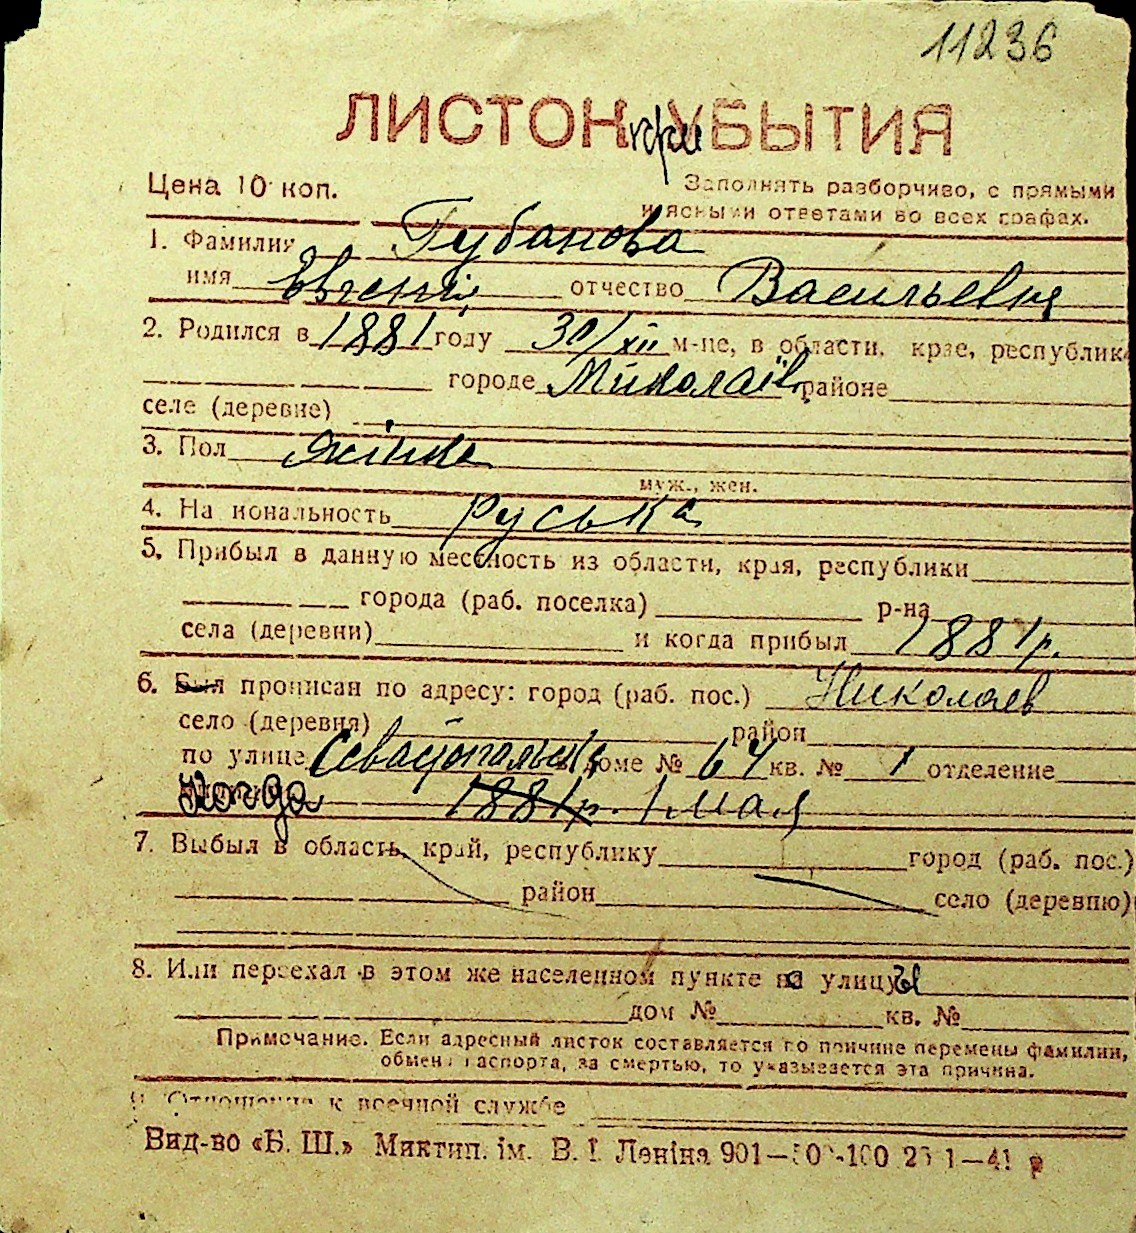 11236
ЛИСТОК при УБЫТИЯ
Цена 10 коп.
Заполнять разборчиво, с прямыми
и ясными ответами во всех графах.
1. Фамилия Губанова
имя Євгенія отчество Васильевна
2. Родился в 1881 году 30/XII м-це, в области, крае, республик
городе Миколаїв районе
селе (деревне)
3. Пол жінка
муж., жен.
4. На иональность руська
5. Прибыл в данную местность из области, края, республики
города (раб. поселка) р-на
села (деревни) и когда прибыл 1881р.
6. Был прописан по адресу: город (раб. пос.) Николаев
село (деревня) район
по улице Севастопольск доме № 64 кв. № 1 отделение
1881р. 1 мая
7. Выбыл в область, край, республику город (раб. пос.)
район село (деревню)
8. Или переехал в этом же населенном пункте с улицы
дом № кв. №
Примечание. Если адресный листок составляется по причине перемены фамилии,
обмена паспорта, за смертью, то указывается эта причина.
9. Отношение к военной службе
Вид-во «Б. Ш.» Миктип. ім. В. І. Леніна 901